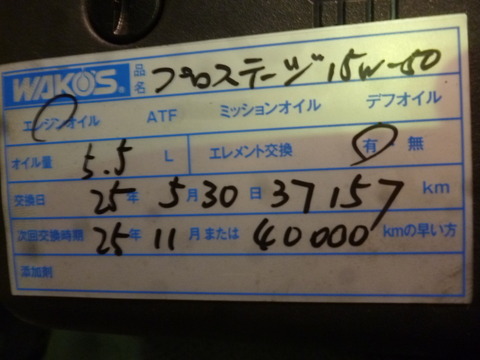 WAKO'S 品名 プロステージ 15W-50
エンジンオイル ATF ミッションオイル デフオイル
オイル量 5.5 L エレメント交換 有・無
交換日 25年 5月30日 37157 km
次回交換時期 25年 11月または 40000 kmの早い方
添加剤